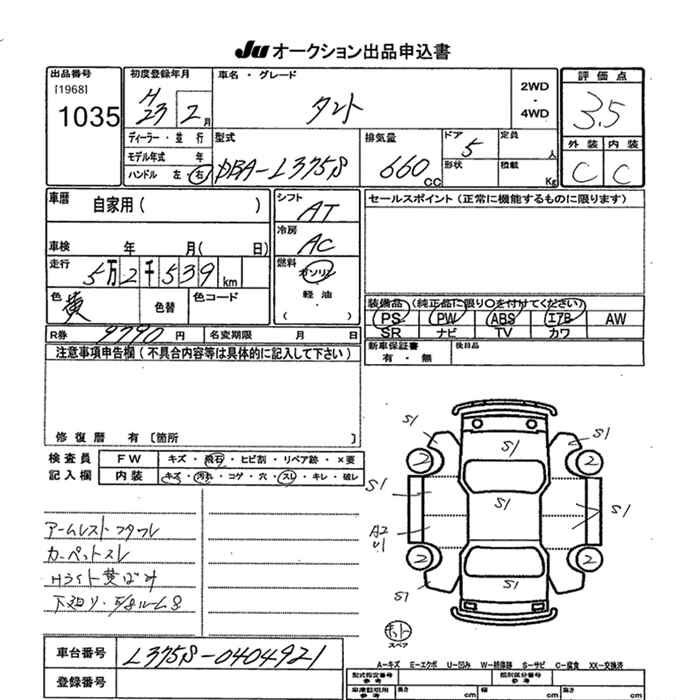 Ju オークション出品申込書
出品番号
[1968]
1035
初度登録年月
H
23 2月
車名・グレード
タント
2WD
・
4WD
評価点
3.5
外装 内装
C C
ディーラー・並行
モデル年式 年
ハンドル 左・右
型式
DBA-L375S
排気量
660 CC
ドア
5
形状
定員
人
積載
Kg
車歴
自家用( )
車検 年 月( 日)
走行
5万2千539km
色
黄
色替
色コード
シフト
AT
冷房
AC
燃料
ガソリン
・
軽油
( )
セールスポイント(正常に機能するものに限ります)
装備品(純正品に限り〇を付けてください)
PS PW ABS エアB AW
SR ナビ TV カワ
R券 9790円 名変期限 月 日
新車保証書
有・無
後日品
注意事項申告欄(不具合内容等は具体的に記入して下さい)
修復歴 有 [箇所 ]
検査員
記入欄
FW キズ・飛石・ヒビ割・リペア跡・×要
内装 キズ・汚れ・コゲ・穴・スレ・キレ・破レ
カーペットスレ
Hライト黄ばみ
S1
S1
S1
2
2
S1
S1
S1
A2
U1
2
2
S1
S1
S1
スペア
車台番号 L375S-0404921
登録番号
A-キズ E-エクボ U-凹み W-補修跡 S-サビ C-腐食 XX-交換済
型式指定番号
参考
類別区分番号
参考
車庫証明用
参考
長さ cm
幅 cm
高さ cm